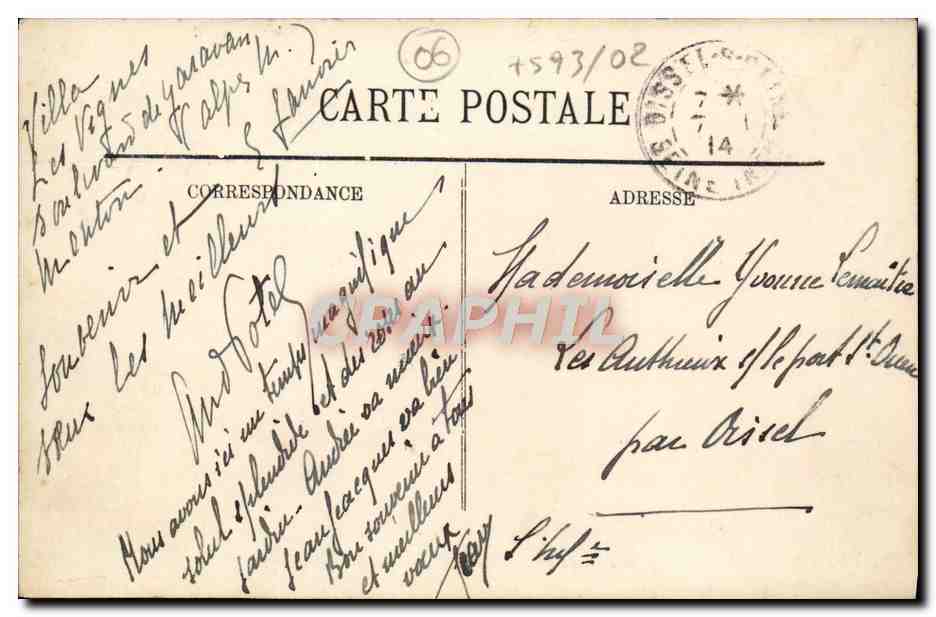 06
+593/02
CARTE POSTALE
CORRESPONDANCE
ADRESSE
Villa
Les Vignes
Boulevard de Garavan
Menton. Alpes M.
5 Janvier
Souvenir et
vœux les meilleurs
Nous avons ici un temps magnifique
soleil splendide et des roses au
jardin. Andrée va mieux.
Jean Jacques va bien
Bon souvenir à tous
et meilleurs
vœux
Mademoiselle Yvonne Lemaitre
Les Authieux s/ le port St Ouen
par Oissel
S. Infre
OISSEL
7
7 1
14
SEINE INF
CPAPHIL